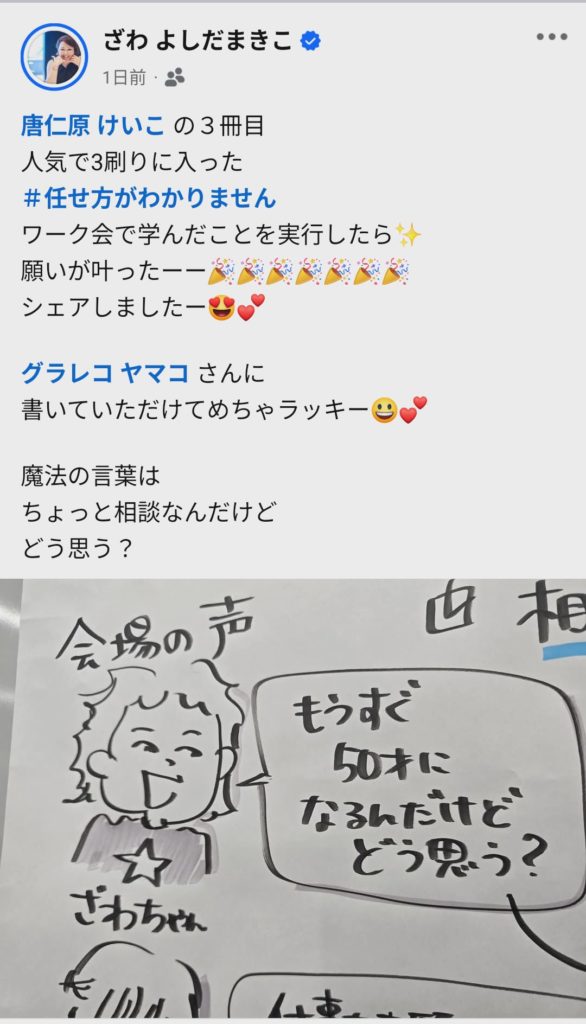 ざわ よしだまきこ
1日前 ·
唐仁原 けいこ の３冊目
人気で3刷りに入った
＃任せ方がわかりません
ワーク会で学んだことを実行したら✨
願いが叶ったーー🎉🎉🎉🎉🎉🎉🎉
シェアしましたー😍💕
グラレコ ヤマコ さんに
書いていただけてめちゃラッキー😃💕
魔法の言葉は
ちょっと相談なんだけど
どう思う？
会場の声
相
もうすぐ
50才に
なるんだけど
どう思う?
ざわちゃん